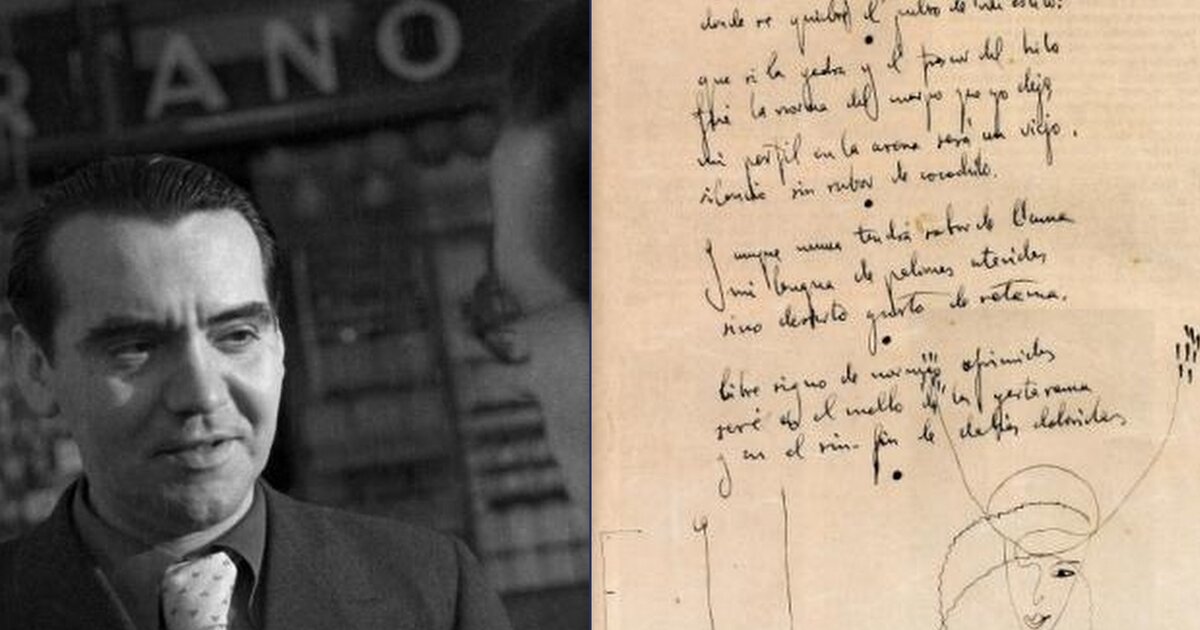 R ANO
donde se quiebra el pulso de mi estilo.
que si la yedra y el frescor del hilo
fué la norma del cuerpo que yo dejo
mi perfil en la arena será un viejo
silencio sin rubor de cocodrilo.
Y aunque nunca tendrá sabor de llama
mi lengua de palomas ateridas
sino desierto gusto de retama,
libre signo de normas oprimidas
seré en el cuello de la yerta rama
y en el sin-fin de dalias doloridas